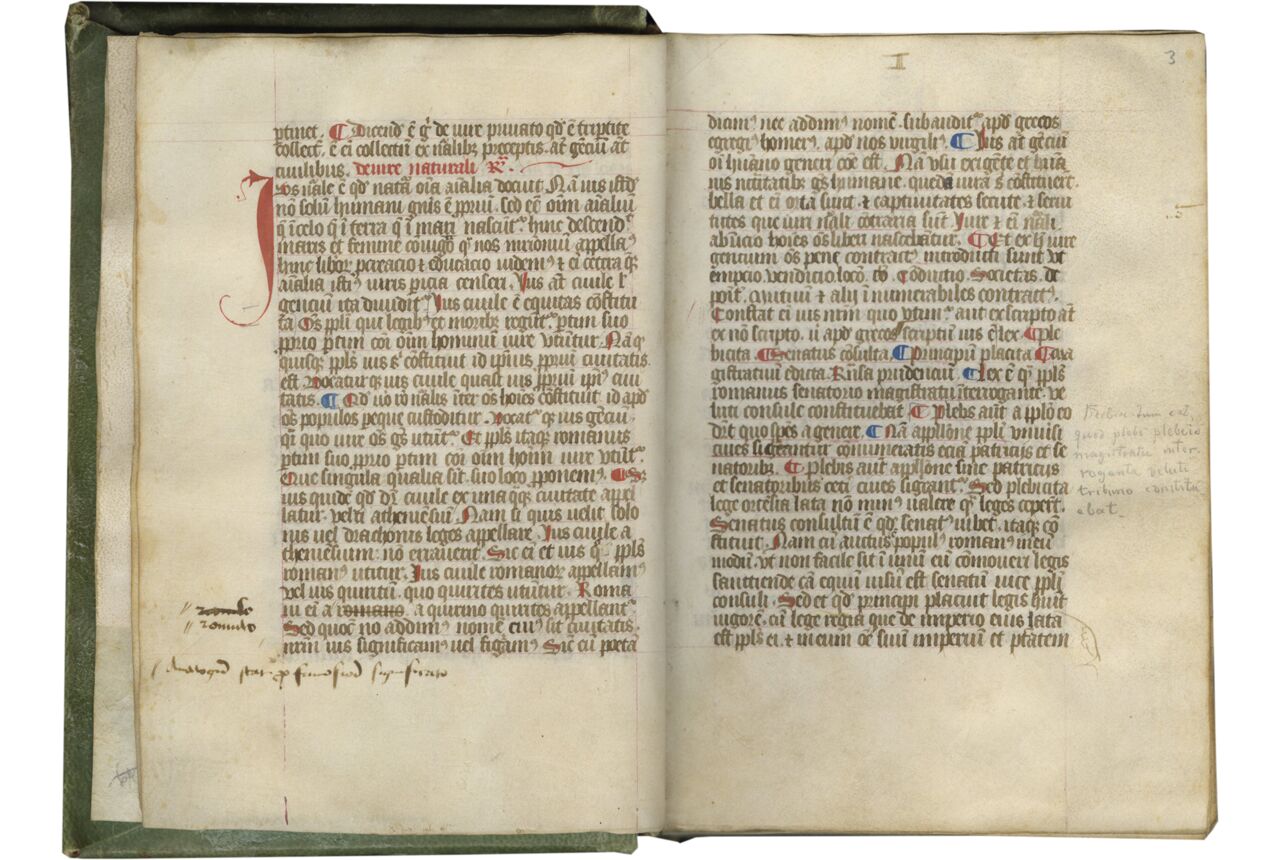 ptinet. Dicend' ē g̊ de iure priuato qd' ē triptite
collect'. ē ei collectū ex n̄alib; preceptis. at' gēciū at'
ciuilibus. de iure naturali R̄.
Ius n̄ale ē qd' nat̄a oīa aīalia docuit Nā ius istd'
nō solū humani gn̄is ē ꝓpriū. sed eē oīm aīaliū
q̄ ī celo q̄ ī terra q̄ ī mari nascūt̄. hinc descend'
maris et femine coniūgō q̄ nos mr̄ioniū appella
hinc libor; pcreacio ⁊ educacio uidem' ⁊ ei cetera q̄;
aīalia isti' iuris picia censeri. Ius at' ciuile l'
genciū ita diuidit̄ Ius ciuile ē equitas cōstitu
ta Om̄s ppli qui legib; et morib; regūt̄. ptim suo
pprio ptim cōi oīm hominū iure vtūtur. Nā q̄
quisq; ppl's ius s' cōstituit id ipsius ꝓpriū ciuitatis
est. Vocatur q; ius ciuile quasi ius ꝓpriū ip̄i' ciui
tatis. Qd' uo rō n̄alis īter os hoīes cōstituit. id apd'
os populos peque custoditur. vocat̄ q; ius gēciū.
q̄i quo iure os gēs utūt̄. Et ppl's itaq; romanus
ptim suo pprio ptim cōi oīm hoim iure vtūt̄.
Que singula qualia sūt. suo loco pponem'. S;
ius quidē qd' dr̄ ciuile ex una q̄q; ciuitate appel
latur. velūti atheniēsiū. Nam si quis uelit solo
nis uel drachonis leges appellare. Ius ciuile a
theniēsium. nō errauerit. Sic ei et ius q̄ ppl's
roman' utitur. Ius ciuile romanor; appellam'
vel ius quiritū. quo quirites utūtur. Roma
ni ei a romano. a quirino quirites appellant̄.
Sed quoc' nō addim' nomē cui' sit ciuitatis.
nr̄m ius significam' uel figam' Sic cū poeta
romulo
romulo
dicim' nec addim' nomē. subaudit̄ apd' grecos
egregi' homer'. apd' nos virgili'. Ius at' gēciū
oī hūano generi cōe est. Nā vsu exigēte et hūa
nis nc̄itatib; gēs humane. quedā iura s' cōstituerē.
bella et ei orta sunt. ⁊ captiuitates secute. ⁊ serui
tutes que iuri n̄ali cōtraria sūt. Iure ⁊ ei n̄ali
ab īnicio hoīes os liberi nascebātur. Et ex h' iure
gencium os pene contract' introducti sunt. vt
empcio. vendicio. locō. cōductio. Societas. de
poit'. mutuū ⁊ alij īnumerabiles contract'.
Constat ei ius nr̄m quo vtim'. aut ex scripto at'
ex nō scripto. ut apd' grecos scriptū ius ē lex. ple
biscita. Senatus cōsulta. Principiū placita. ma
gistratuū edicta. Rn̄sa prudenciū. lex ē q̄ ppl's
romanus senatorio magistratu īterrogante. ve
luti consule constituebat. Plebs aut' a pplo eo
drt̄ quo spēs a genere. Nā appllōne ppli vniuisi
ciues sigēantur. cōnumeratis eciā patricijs et se
natorib;. plebis aut' appllōne sine patricijs
et senatoribus ceti ciues sigēant̄. Sed plebiscita
lege ortēsia lata nō min' ualere q̄ leges cepert'.
Senatus consultū ē qd' senat' iubet. itaq; cō
stituit. Nam cū auctus popul' roman' in eū
modū. vt non facile sit ī unū eū conuoceri legis
sanctiende cā equū uisū est senatū uice ppli
consuli. Sed et qd' principi placuit legis h̄ut
uigorē. cū lege regia que de imperio eius lata
est ppl's ei. ⁊ in eum oē suū imperiū et ptatem
I
3
quod plebs plebeio
magistratu inter
rogante veluti
tribuno constitu
ebat